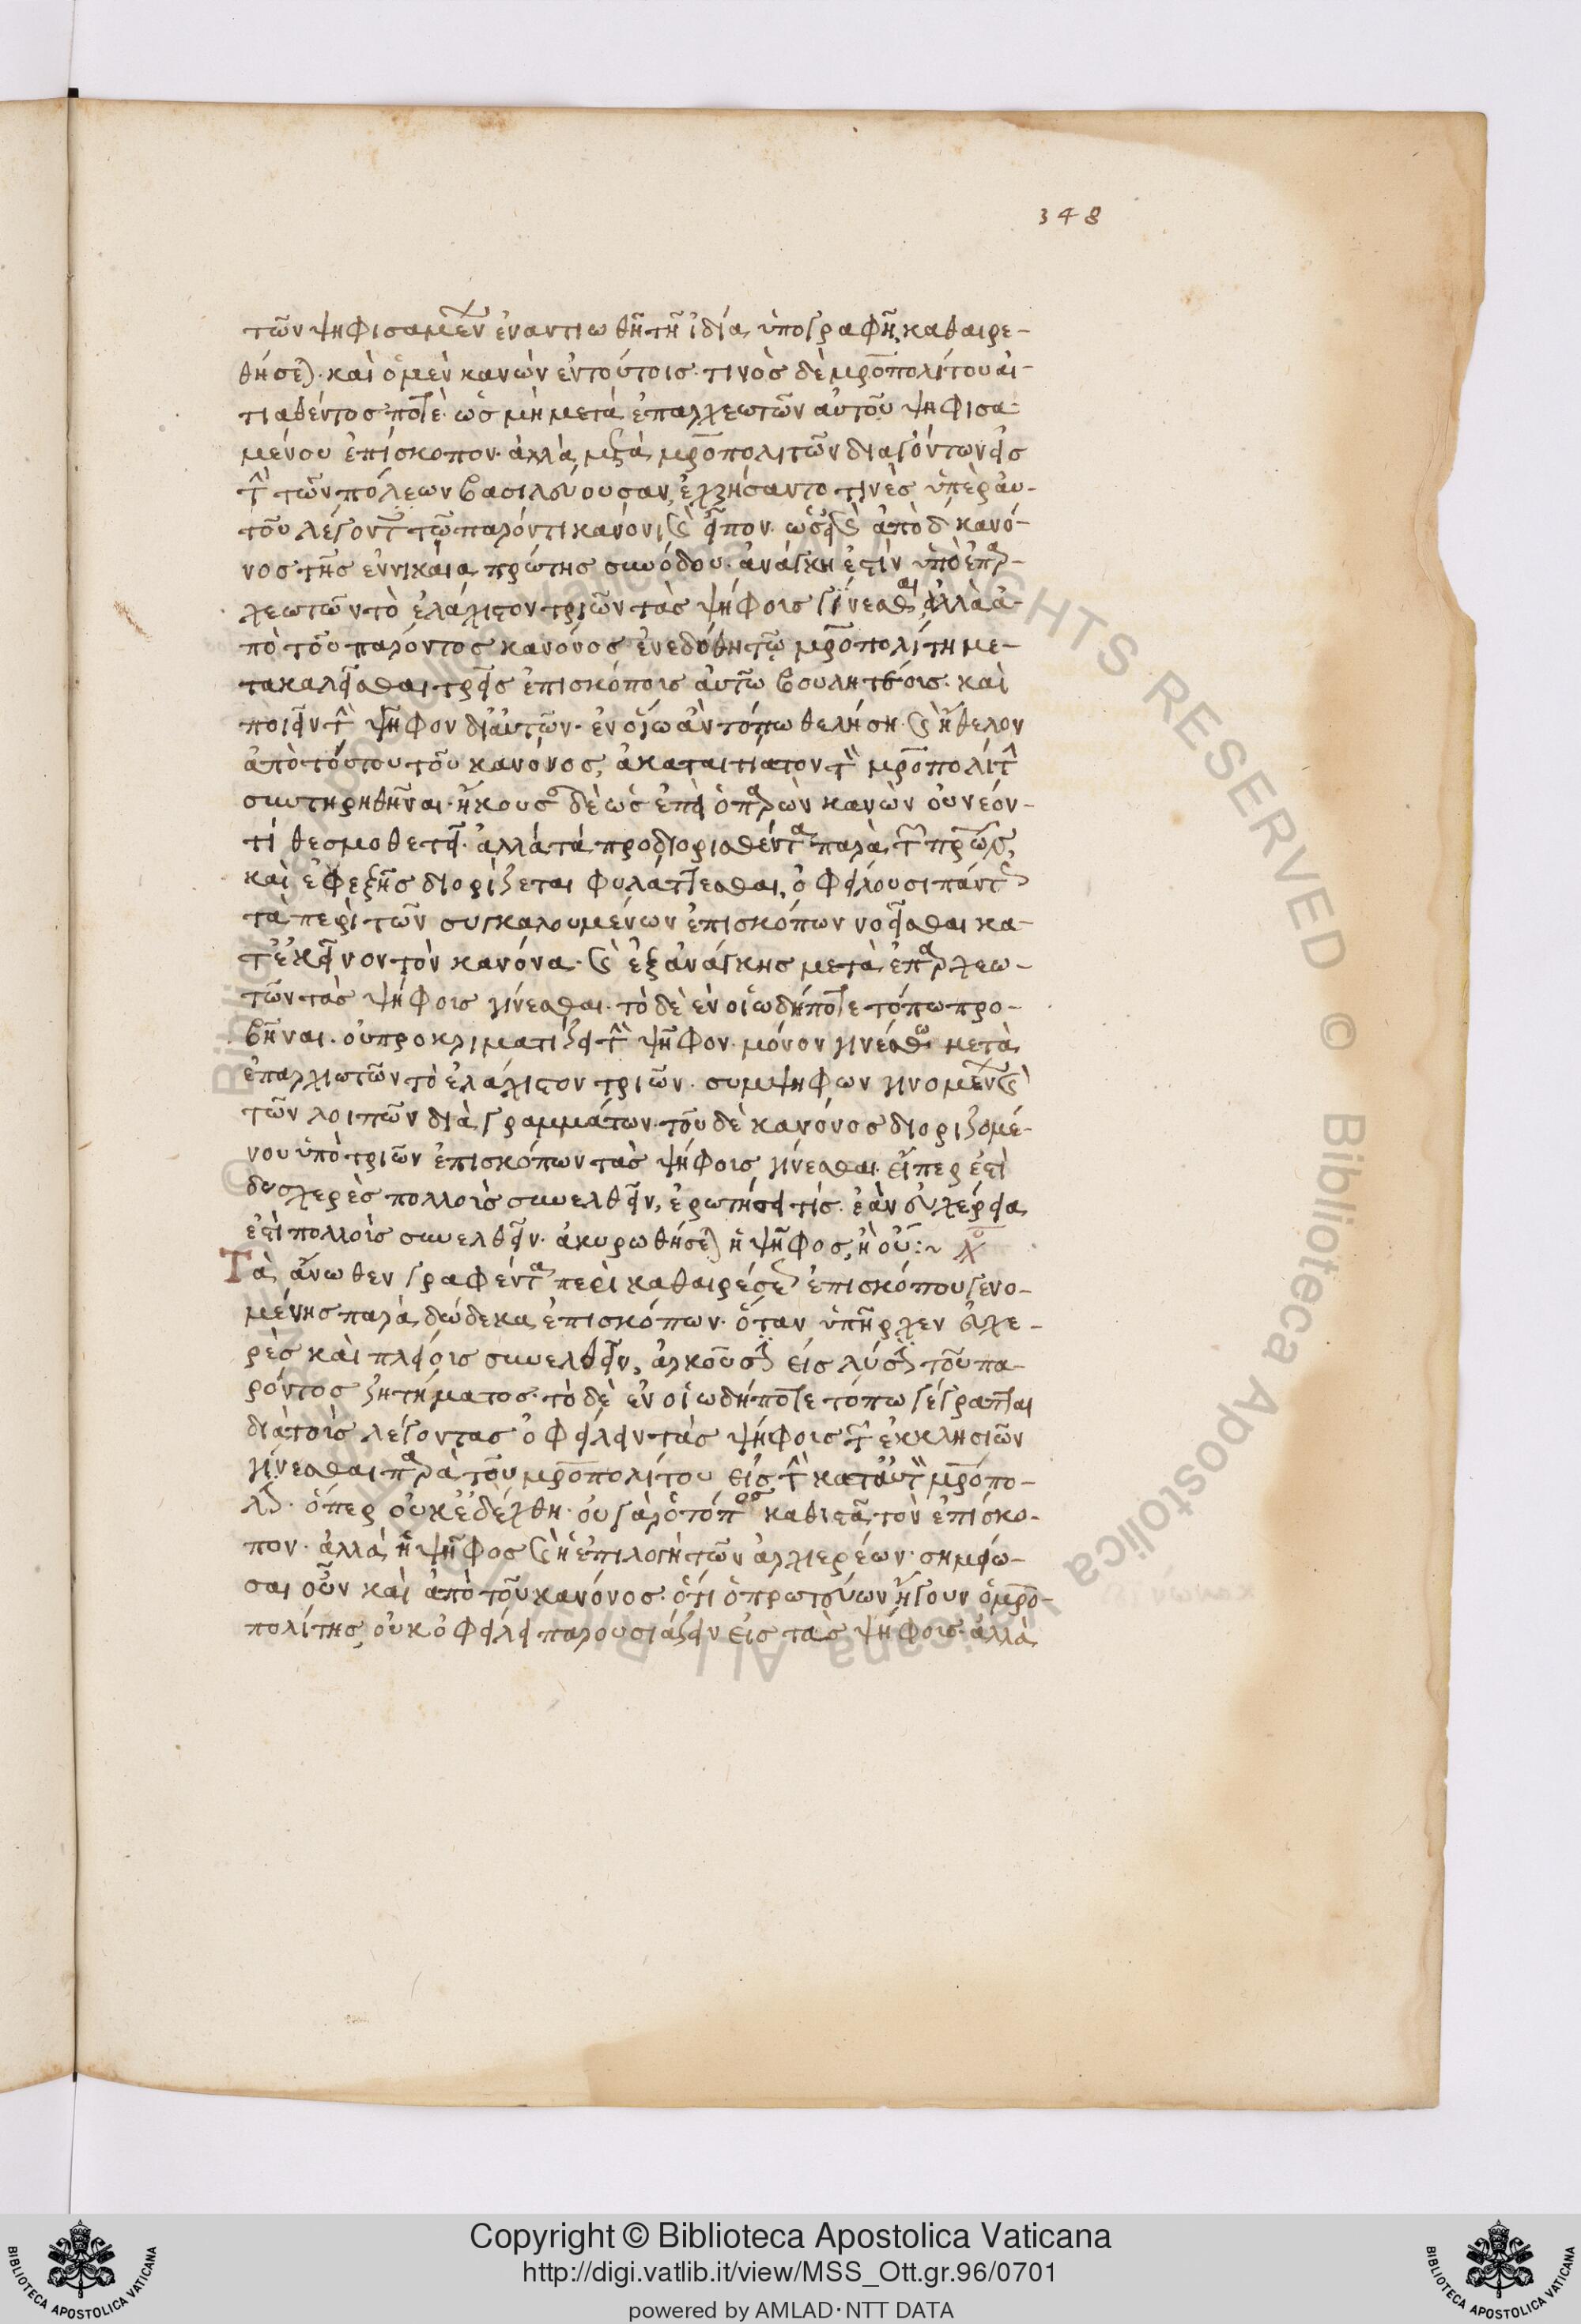 348
τῶν ψηφισαμένων ἐναντιωθῆ τῆ ἰδία ὑπογραφῆ, καθαιρε-
θήσεται. καὶ ὁ μὲν κανὼν ἐν τούτοις. τινὸς δὲ μητροπολίτου αἰ-
τιαθέντος ποτὲ. ὡς μὴ μετὰ ἐπαρχεωτῶν αὐτοῦ ψηφισα-
μένου ἐπίσκοπον. ἀλλὰ μετὰ μητροπολιτῶν διαγόντων εἰς
τὴν τῶν πόλεων βασιλεύουσαν, ἐχρήσαντο τινὲς ὑπὲρ αὐ-
τοῦ λέγοντες τῶ παρόντι κανόνι καὶ εἶπον. ὡς εἰ καὶ ἀπὸ δ κανό-
νος τῆς ἐν νικαία πρώτης συνόδου. ἀνάγκη ἐστὶν ὑπὸ ἐπαρ-
χεωτῶν τὸ ἐλάχιστον τριῶν τὰς ψήφους γίνεσθαι, ἀλλὰ ἀ-
πὸ τοῦ παρόντος κανόνος ἐνεδόθη τῶ μητροπολίτη με-
τακαλεῖσθαι τρεῖς ἐπισκόπους αὐτῶ βουλητέους. καὶ
ποιεῖν τὴν ψῆφον δι αὐτῶν. ἐν οἵω ἀν τόπω θελήση. καὶ ἤθελον
ἀπὸ τούτου τοῦ κανόνος, ἀκαταιτίατον τὸν μητροπολίτην
συντηρηθῆναι. ἤκουσαν δὲ ὡς ἐπεὶ ὁ παρὼν κανὼν οὐ νέον
τί θεσμοθετεῖ. ἀλλὰ τὰ προδιορισθέντα παρὰ τῶν πρώην,
καὶ ἐφεξῆς διορίζεται φυλάττεσθαι, ὀφείλουσι πάντως
τὰ περὶ τῶν συγκαλουμένων ἐπισκόπων νοεῖσθαι κα-
τ ἐκεῖνον τὸν κανόνα. καὶ ἐξ ἀνάγκης μετὰ ἐπαρχεω-
τῶν τὰς ψήφους γίνεσθαι. τὸ δὲ ἐν οἱωδήποτε τόπω προ-
βῆναι. οὐ προκριματίζει τὴν ψῆφον. μόνον γινέσθω μετὰ
ἐπαρχιωτῶν τὸ ἐλάχιστον τριῶν. συμψήφων γινομένων καὶ
τῶν λοιπῶν διὰ γραμμάτων. τοῦ δὲ κανόνος διοριζομέ-
νου ὑπὸ τριῶν ἐπισκόπων τὰς ψήφους γίνεσθαι. εἴπερ ἐστὶ
δυσχερὲς πολλοὺς συνελθεῖν, ἐρωτήσει τίς. ἐὰν εὐχέρεια
ἐστὶ πολλοὺς συνελθεῖν. ἀκυρωθήσεται ἡ ψῆφος, ἢ οὔ:~
Τὰ ἄνωθεν γραφέντα περὶ καθαιρέσεως ἐπισκόπου γενο-
μένης παρὰ δώδεκα ἐπισκόπων. ὅταν ὑπῆρχεν εὐχε-
ρὲς καὶ πλείους συνελθεῖν, ἀρκοῦσιν εἰς λύσιν τοῦ πα-
ρόντος ζητήματος. τὸ δὲ ἐν οἱωδήποτε τόπω γέγραπται
διὰ τοὺς λέγοντας ὀφείλειν τὰς ψήφους τῶν ἐκκλησιῶν
γίνεσθαι παρὰ τοῦ μητροπολίτου εἰς τὴν κατ αὐτὸν μητρόπο-
λιν. ὅπερ οὐκ ἐδέχθη. οὐ γὰρ ὁ τόπος καθιστᾶ τὸν ἐπίσκο-
πον. ἀλλὰ ἡ ψῆφος καὶ ἡ ἐπιλογὴ τῶν ἀρχιερέων. σημείω-
σαι οὖν καὶ ἀπὸ τοῦ κανόνος. ὅτι ὁ πρωτεύων ἤγουν ὁ μητρο-
πολίτης, οὐκ ὀφείλει παρουσιάζειν εἰς τὰς ψήφους. ἀλλὰ
Copyright © Biblioteca Apostolica Vaticana
http://digi.vatlib.it/view/MSS_Ott.gr.96/0701
powered by AMLAD·NTT DATA
BIBLIOTECA APOSTOLICA VATICANA
BIBLIOTECA APOSTOLICA VATICANA